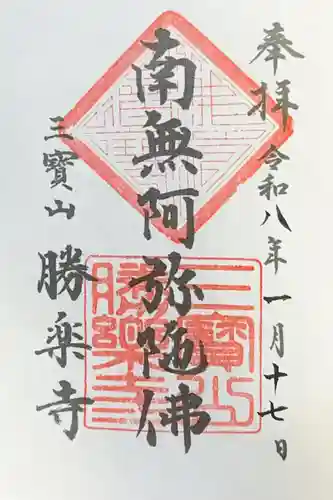 奉拝 令和八年一月十七日
南無阿弥陀佛
三寶山
勝楽寺
三寶山勝樂寺